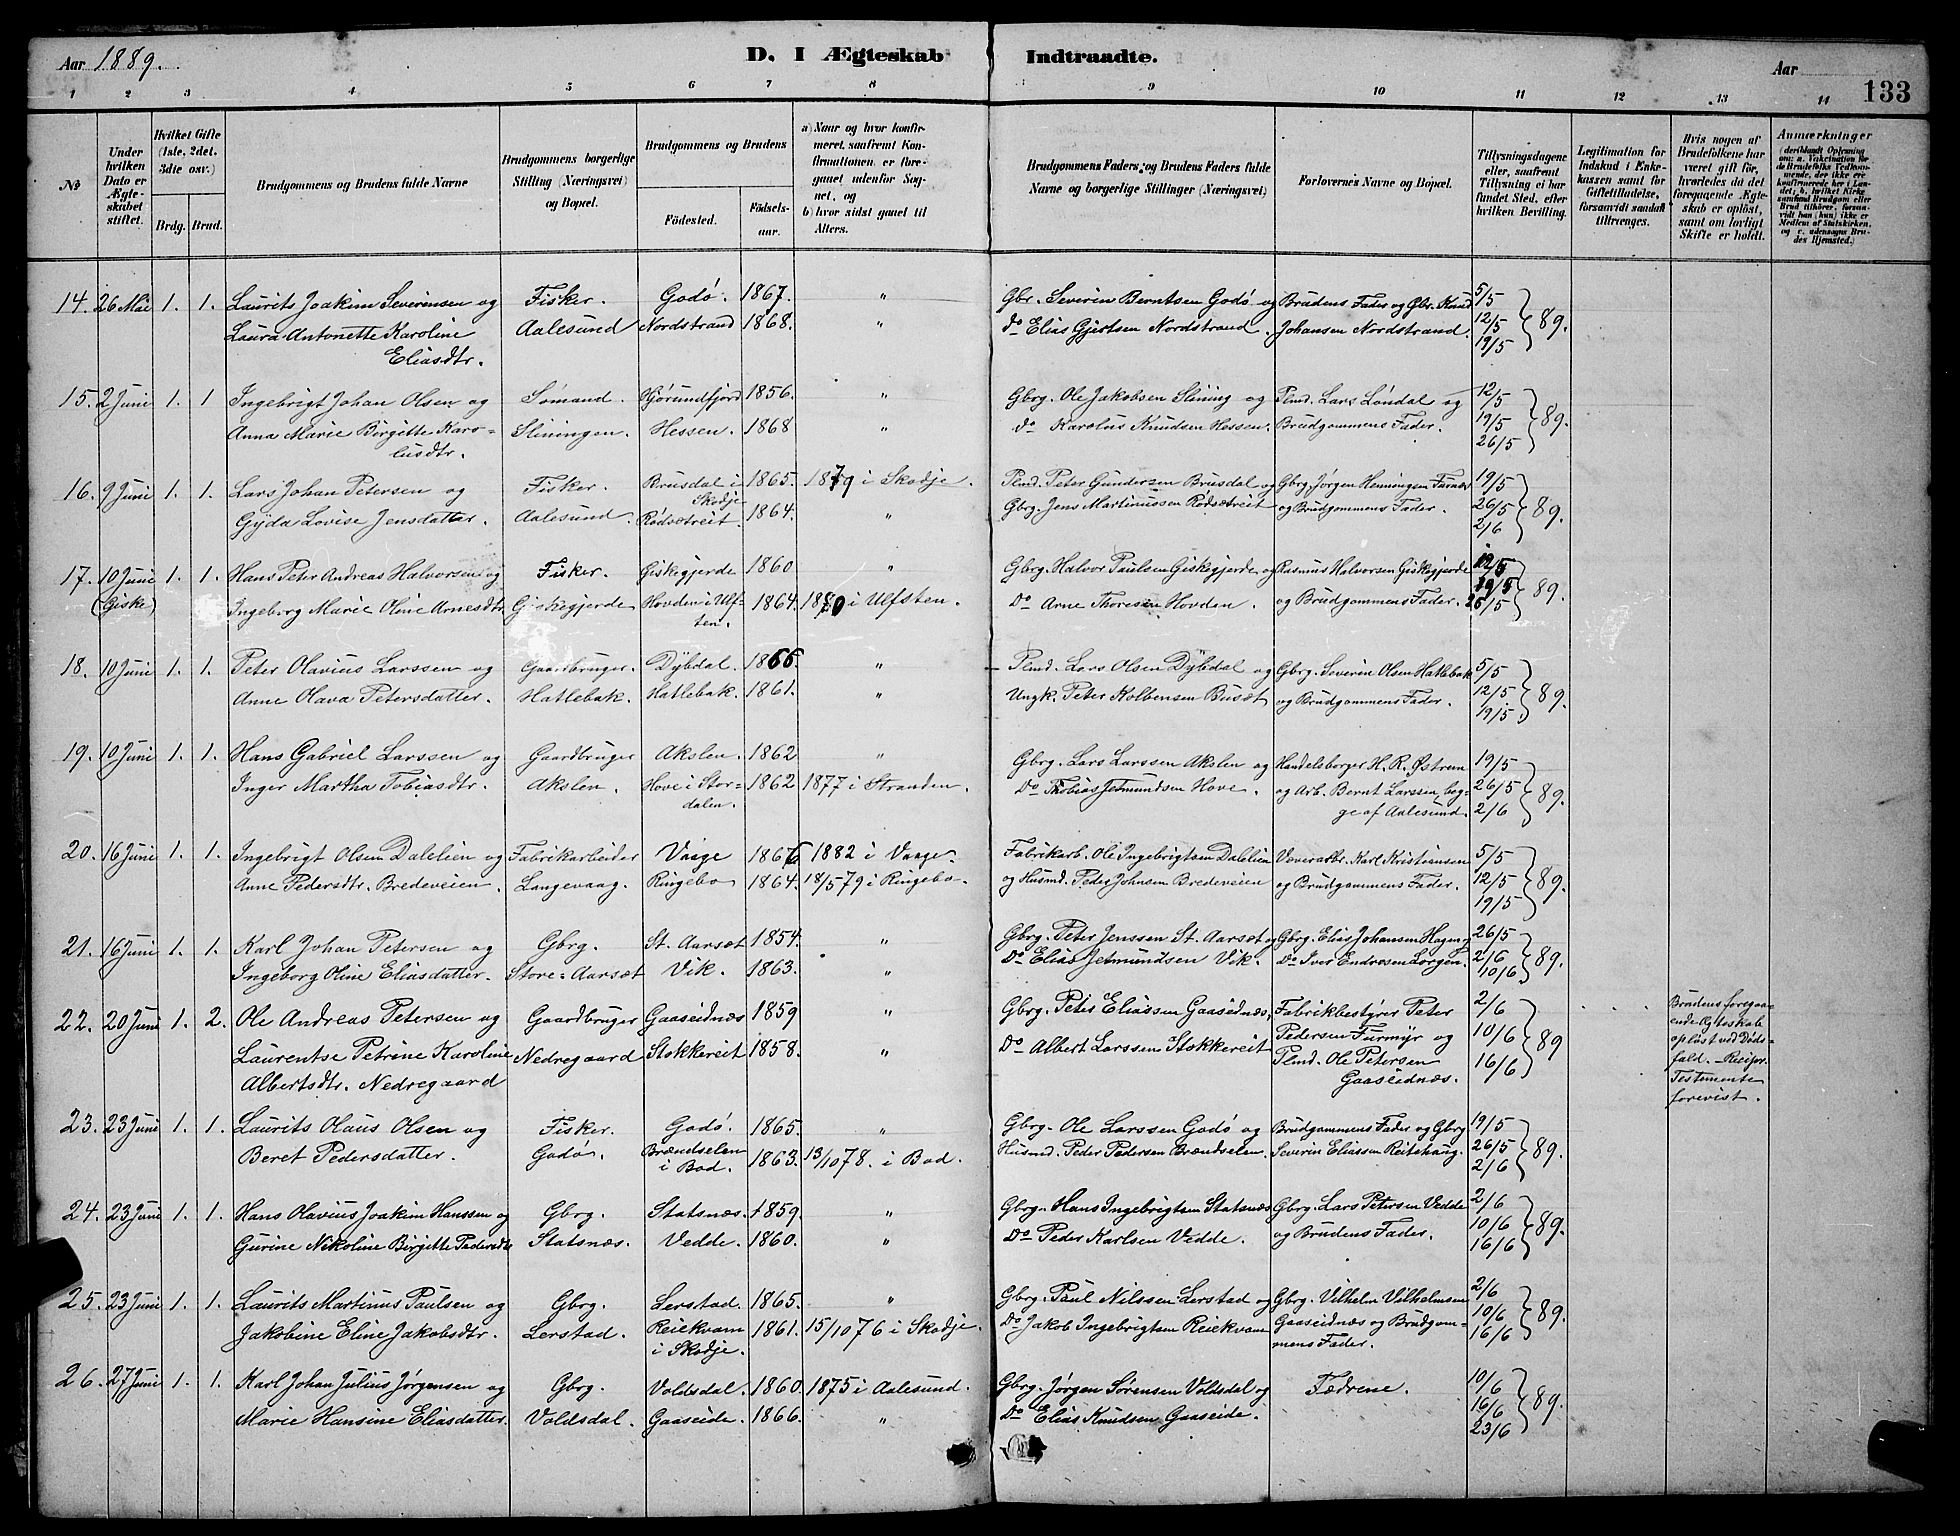 Aar 1889.
D. I Ægteskab
Indtraadte.
Aar
133
1 2 3 4 5 6 7 8 9 10 11 12 13 14
No
Under hvilken Dato er Ægteskabet stiftet.
Hvilket Gifte (1ste, 2det, 3die osv.)
Brdg. Brud.
Brudgommens og Brudens fulde Navne
Brudgommens borgerlige Stilling (Næringsvei) og Bopæl.
Brudgommens og Brudens
Fødested.
Fødselsaar.
a) Naar og hvor konfirmeret, saafremt Konfirmationen er foregaaet udenfor Sognet, og
b) hvor sidst gaaet til Alters.
Brudgommens Faders og Brudens Faders fulde Navne og borgerlige Stillinger (Næringsvei)
Forlovernes Navne og Bopæl.
Tillysningsdagene eller, saafremt Tillysning ei har fundet Sted, efter hvilken Bevilling.
Legitimation for Indskud i Enkekassen samt for Giftetilladelse, forsaavidt saadan tiltrænges.
Hvis nogen af Brudefolkene har været gift før, hvorledes da det foregaaende Ægteskab er opløst, samt om lovligt Skifte er holdt.
Anmærkninger (deriblandt Oplysning om: a. Vakcination for de Brudefolks Vedkommende, der ikke ere konfirmerede her i Landet; b. hvilket Kirkesamfund Brudgom eller Brud tilhører, forsaavidt han (hun) ikke er Medlem af Statskirken, og c. udensogns Brudes Hjemsted.)
14. 26 Mai 1. 1. Laurits Joakim Severinsen og Fisker. Godø. 1867. " Gbr. Severin Berntsen Godø og Brudens Fader og Gbr. Knud 5/5
Laura Antonette Karoline Aalesund Nordstrand 1868. " Do Elias Gjertsen Nordstrand. Johansen Nordstrand. 12/5 89.
Eliasdtr. 19/5
15. 2 Juni 1. 1 Ingebrigt Johan Olsen og Sømand. Hjørundfjord 1856. " Gbrg. Ole Jakobsen Slining og Plmd. Lars Løndal og 12/5
Anna Marie Birgitte Karo= Sliningen. Hessen. 1868 " Do Karolus Knudsen Hessen. Brudgommens Fader. 19/5 89.
lusdtr. 26/5
16. 9 Juni 1. 1. Lars Johan Petersen og Fisker. Brusdal i Skodje 1865. 1879 i Skodje. Plmd. Peter Gundersen Brusdal og Gbrg. Jørgen Henningsen Furnæs 19/5
Gyda Lovise Jensdatter. Aalesund. Rødsetreit. 1864. " Gbrg. Jens Martinussen Rødsetreit og Brudgommens Fader. 26/5 89.
2/6
17. 10 Juni 1. 1. Hans Peter Andreas Halvorsen og Fisker. Giskegjerde 1860 " Gbrg. Halvor Paulsen Giskegjerde og Rasmus Halvorsen Giskegjerde 12/5
(Giske) Ingeborg Marie Oline Arnesdtr. Giskegjerde Hovden i Ulfsten. 1864. 1880 i Ulfsten. Do Arne Thoresen Hovden. og Brudgommens Fader. 19/5 89.
26/5
18. 10 Juni 1. 1. Peter Olavius Larssen og Gaardbruger. Dybdal. 1866. " Plmd. Lars Olsen Dybdal og Gbrg. Severin Olsen Hatlebak 5/5
Anne Olava Petersdatter. Hatlebak. Hatlebak. 1861. " Ungk. Peter Kolbensen Busæt og Brudgommens Fader. 12/5 89.
19/5.
19. 10 Juni 1. 1. Hans Gabriel Larssen og Gaardbruger Akslen. 1862 " Gbrg. Lars Larssen Akslen og Handelsborger H. R. Østrem 19/5
Inger Martha Tobiasdtr. Akslen. Hove i Stordalen. 1862 1877 i Stranden. Do Thobias Jetmundsen Hove. og Arb. Bernt Larssen, beg- 26/5 89.
ge af Aalesund. 2/6
20. 16 Juni 1. 1. Ingebrigt Olsen Dalelien og Fabrikarbeider Vaage 1866 1882 i Vaage. Fabrikarb. Ole Ingebrigtsen Dalelien Væverarbr. Karl Kristiansen 5/5
Anne Pedersdtr. Bredeveien. Langevaag. Ringebo 1864. 18/5 79 i Ringebo. og Husmd. Peder Johnsen Bredeveien og Brudgommens Fader. 12/5 89.
19/5
21. 16 Juni 1. 1. Karl Johan Petersen og Gbrg. St. Aarsæt 1854. " Gbrg. Peter Jenssen St. Aarsæt og Gbrg. Elias Johansen Hagen, 26/5
Ingeborg Oline Eliasdatter. Store=Aarsæt Vik. 1863. " Do Elias Jetmundsen Vik. Do Iver Endresen Lorgen. 2/6 89.
10/6
22. 20 Juni 1. 2. Ole Andreas Petersen og Gaardbruger Gaaseidnæs 1859 " Gbrg. Peter Eliassen Gaaseidnæs, Fabrikbestyrer Peter 2/6
Laurentse Petrine Karoline Nedregaard Stokkereit 1858. " Do Albert Larssen Stokkereit Pedersen Furmyr og 10/6 89
Albertsdtr. Nedregaard Plmd. Ole Petersen 16/6
Gaaseidnæs.
Brudens foregaa-
ende Egteskab
opløst ved Døds-
fald. – Recipr.
Testamente
forevist.
23. 23 Juni 1. 1. Laurits Olaus Olsen og Fisker. Godø. 1865. " Gbrg. Ole Larssen Godø og Brudgommens Fader og Gbrg 19/5
Beret Pedersdatter. Godø. Brændselen i Bod. 1863. 13/10 78. i Bod. Husmd. Peder Pedersen Brændselen. Severin Eliassen Reitehaug. 26/5 89.
2/6
24. 23 Juni 1. 1. Hans Olavius Joakim Hanssen og Gbrg. Statsnæs. 1859. " Gbrg. Hans Ingebrigtsen Statsnæs Gbrg. Lars Petersen Vedde 2/6
Gurine Nikoline Birgitte Pedersdtr. Statsnæs. Vedde. 1860. " Do Peder Karlsen Vedde. og Brudens Fader. 10/6 89.
16/6
25. 23 Juni 1. 1. Laurits Martinus Paulsen og Gbrg. Lerstad. 1865. " Gbrg. Paul Nilssen Lerstad og Gbrg. Vilhelm Vilhelmsen 2/6
Jakobine Eline Jakobsdtr. Lerstad. Reiekvam i Skodje. 1861. 15/10 76 i Skodje. Do Jakob Ingebrigtsen Reiekvam Gaaseidnæs og Brudgom= 10/6 89.
mens Fader. 16/6
26. 27 Juni 1. 1. Karl Johan Julius Jørgensen og Gbrg. Voldsdal. 1860. 1875 i Aalesund. Gbrg. Jørgen Sørensen Voldsdal og Fædrene. 10/6
Marie Hansine Eliasdatter. Voldsdal. Gaaseide. 1866. " Do Elias Knudsen Gaaseide. 16/6 89.
23/6